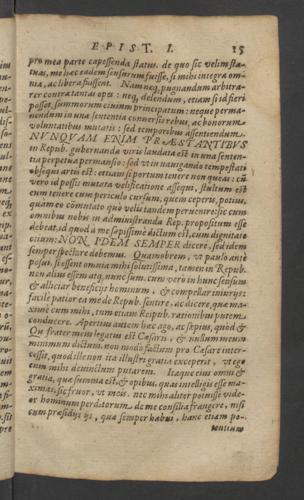 EPIST. I. 15
pro mea parte capessenda status. de quo sic velim sta-
tuas, me hæc eadem sensurum fuisse, si mihi integra om-
nia, ac libera fuissent. Nam neq; pugnandum arbitra-
rer contra tantas opes: neq; delendum, etiam si id fieri
posset, summorum civium principatum: neque perma-
nendum in una sententia conversis rebus, ac bonorum
voluntatibus mutatis: sed temporibus assentiendum.
NUNQUAM ENIM PRÆSTANTIBUS
in Repub. gubernanda viris laudata est in una senten-
tia perpetua permansio: sed ut in navigando tempestati
obsequi artis est: etiam si portum tenere non queas: cū
vero id possis mutata velificatione assequi, stultum est
eum tenere cum periculo cursum, quem ceperis, potius,
quàm eo cōmutato quò velis tandem pervenire: sic cum
omnibus nobis in administranda Rep. propositum esse
debeat, id quod à me sæpissimè dictum est, cum dignitate
otium: NON IDEM SEMPER dicere, sed idem
semper spectare debemus. Quamobrem, ut paulo antè
posui, si essent omnia mihi solutissima, tamen in Repub.
non alius essem atq; nunc sum. cum vero in hunc sensum
& alliciar beneficijs hominum, & compellar iniurijs:
facile patior ea me de Repub. sentire, ac dicere, quæ ma-
xime cum mihi, tum etiam Reipub. rationibus putem
conducere. Apertius autem hæc ago, ac sæpius, quòd &
Qu. frater meus legatus est Cæsaris, & nullum meum
minimum dictum, non modò factum pro Cæsare inter-
cessit, quod ille non ita illustri gratia exceperit, ut ego
eum mihi devinctum putarem. Itaque eius omni &
gratia, quæ summa est, & opibus, quas intelligis esse ma-
ximas, sic fruor, ut meis. nec mihi aliter potuisse video
hominum perditorum de me consilia frangere, nisi
cum præsidijs ijs, quæ semper habui, hanc etiam po-